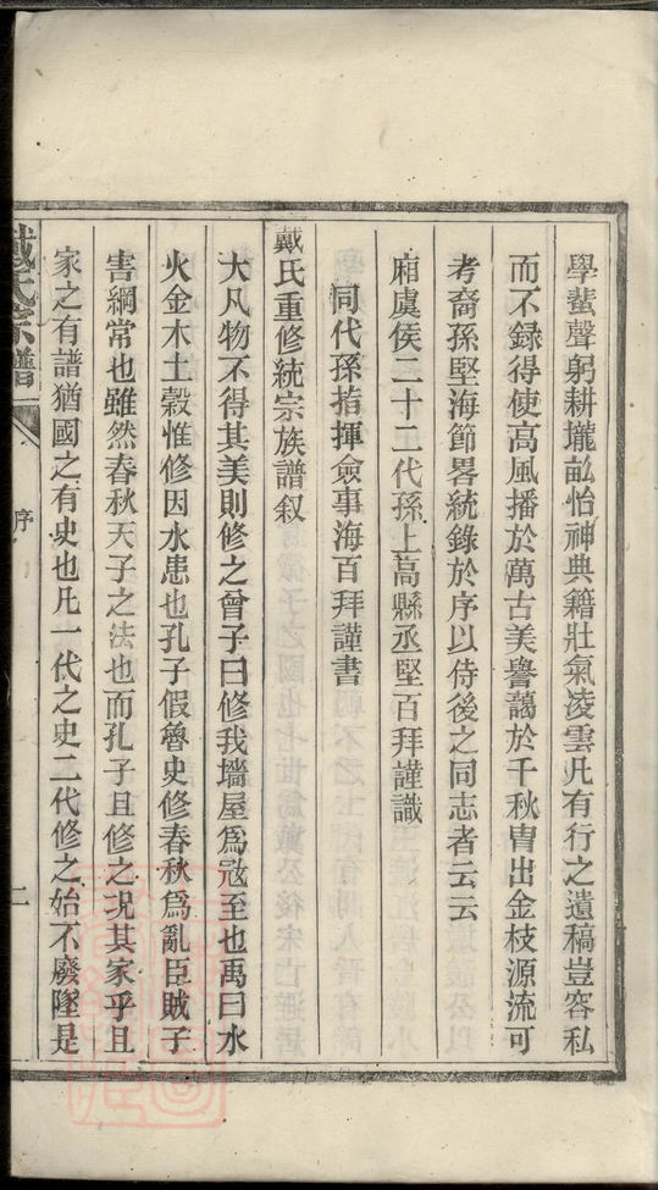 學蜚聲躬耕壠畝怡神典籍壯氣凌雲凡有行之遺稿豈容私
而不録得使高風播於萬古美譽藹於千秋冑出金枝源流可
考裔孫堅海節畧統錄於序以侍後之同志者云云
廂虞侯二十二代孫上高縣丞堅百拜謹識
同代孫指揮僉事海百拜謹書
戴氏重修統宗族譜叙
大凡物不得其美則修之曾子曰修我墻屋爲冦至也禹曰水
火金木土穀惟修因水患也孔子假魯史修春秋爲亂臣賊子
害綱常也雖然春秋天子之法也而孔子且修之况其家乎且
家之有譜猶國之有史也凡一代之史二代修之始不廢墜是
戴氏宗譜
序
二